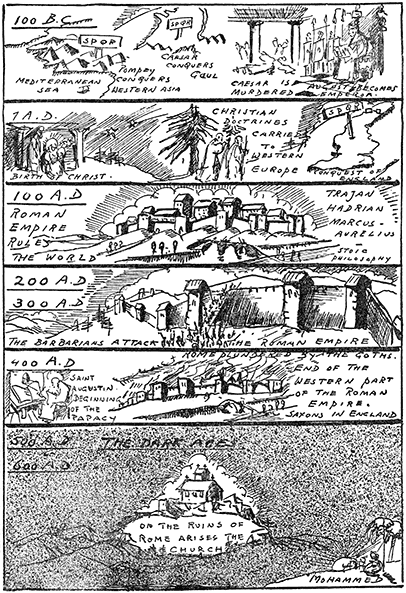 100 B.C.
SPQR
SPQR
MEDITERRANEAN
SEA
POMPEY
CONQUERS
WESTERN ASIA
CAESAR
CONQUERS
GAUL
CAESAR IS
MURDERED
AUGUSTUS BECOMES
EMPEROR
1 A.D.
BIRTH CHRIST.
CHRISTIAN
DOCTRINES
CARRIED
TO
WESTERN
EUROPE
SPQR
CONQUEST OF
ENGLAND
100 A.D
ROMAN
EMPIRE
RULES
THE WORLD
TRAJAN
HADRIAN
MARCUS-
AURELIUS
STOIC
PHILOSOPHY
200 A.D
300 A.D
THE BARBARIANS ATTACK THE ROMAN EMPIRE
400 A.D
SAINT
AUGUSTIN
BEGINNING
OF THE
PAPACY
ROME PLUNDERED BY THE GOTHS.
END OF THE
WESTERN PART
OF THE ROMAN
EMPIRE.
SAXONS IN ENGLAND
500 A.D THE DARK AGES
600 A.D
ON THE RUINS OF
ROME ARISES THE
CHURCH
MOHAMMED